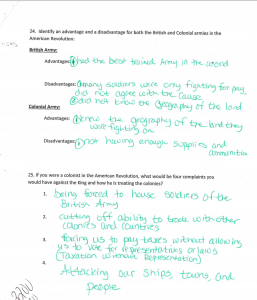 24. Identify an advantage and a disadvantage for both the British and Colonial armies in the
American Revolution:
British Army:
Advantages: ① had the best trained Army in the world
Disadvantages: ① many soldiers were only fighting for pay
did not agree with the cause
② did not know the geography of the land
Colonial Army:
Advantages: ① knew the geography of the land they
were fighting on
Disadvantages: ① not having enough supplies and
25. If you were a colonist in the American Revolution, what would be four complaints you
would have against the King and how he is treating the colonies?
1. being forced to house soldiers of the
British Army
2. cutting off ability to trade with other
colonies and countries
3. forcing us to pay taxes without allowing
us to vote for representatives or laws
(Taxation without Representation)
4. Attacking our ships, towns, and
people